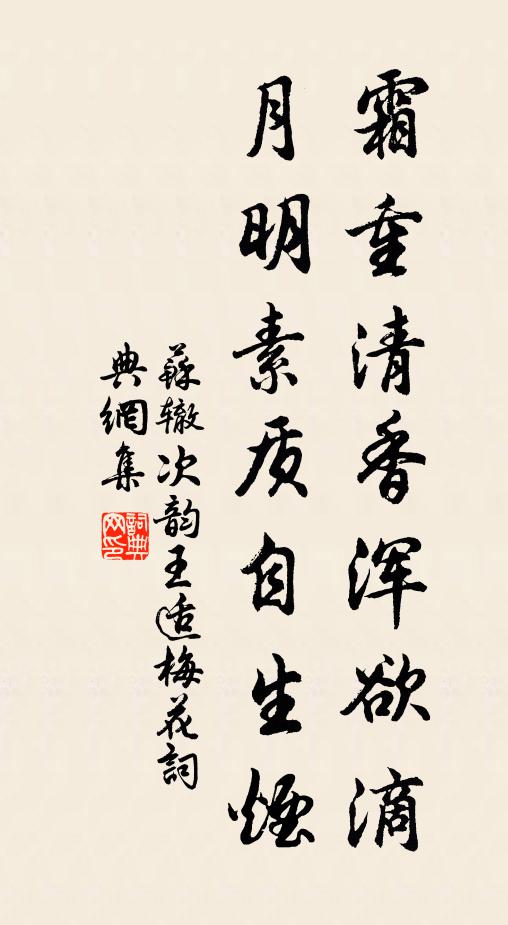 霜重清香浑欲滴
月明素质自生煙
蘇辙次韵王适梅花詞
典網集
詞典網印